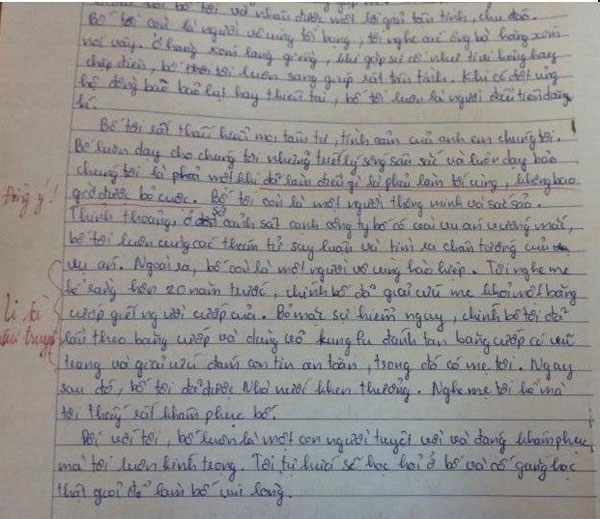 bố tôi và nhận được một lời giải tận tình, chu đáo.
Bố tôi còn là người vô cùng tốt bụng, tôi nghe các ông bà hàng xóm
nói vậy. Ở hàng xóm láng giềng, khi gặp sự cố như tivi hỏng hay
chập điện, bố tôi luôn sang giúp rất tận tình. Khi có đợt ủng
hộ đồng bào bão lụt hay thiên tai, bố tôi luôn là người đầu tiên đăng
kí.
Bố tôi rất thấu hiểu mọi tâm tư, tình cảm của anh em chúng tôi.
Bố luôn dạy cho chúng tôi những triết lý sống sâu sắc và luôn dạy bảo
chúng tôi là phải một khi đã làm điều gì là phải làm tới cùng, không bao
giờ được bỏ cuộc. Bố tôi còn là một người thông minh và sắc sảo.
Đồng ý!
Thỉnh thoảng, ở cảnh sát cạnh công ty bố có các vụ án vướng mắt,
bố tôi luôn cùng các thám tử suy luận và tìm ra chân tướng của
vụ án. Ngoài ra, bố còn là một người vô cùng hào hiệp. Tôi nghe mẹ
kể rằng hơn 20 năm trước, chính bố đã giải cứu mẹ khỏi một băng
cướp giết người cướp của. Bỏ mặc sự hiểm nguy, chính bố tôi đã
Li kì
truyện
lần theo băng cướp và dùng võ kungfu đánh tan băng cướp có vũ
trang và giải cứu đám con tin an toàn, trong đó có mẹ tôi. Ngay
sau đó, bố tôi đã được Nhà nước khen thưởng. Nghe mẹ tôi kể mà
tôi thấy rất khâm phục bố.
Đối với tôi, bố luôn là một con người tuyệt vời và đáng khâm phục
mà tôi luôn kính trọng. Tôi tự hứa sẽ học hỏi ở bố và cố gắng học
thật giỏi để làm bố vui lòng.